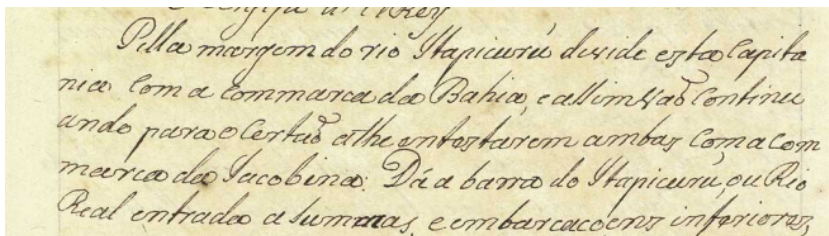 Pella margem do rio Itapicurú devide esta Capita
nia com a commarca da Bahia, e assim vaõ continu
ando para o Certaõ athe entestarem ambas com a com
marca da Jacobina. Dá a barra do Itapicurú, ou Rio
Real entrada a summas, e embarcacoens inferiores,